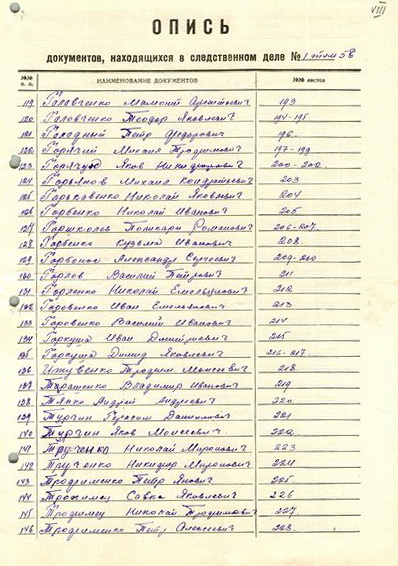 VIII
ОПИСЬ
документов, находящихся в следственном деле № 1 том 58
№№ п. п. НАИМЕНОВАНИЕ ДОКУМЕНТОВ №№ листов
119 Головченко 193
120 Головченко Теодор Яковлевич 194-195.
121 Голодный Петр Федорович 196.
122 Горячий Михаил Трофимович 197-199
123 Яков Никифорович 200-202.
124 Горбянов Михаил Кондратьевич 203
125 Горьковенко Николай Яковлевич 204
126 Горбенко Николай Иванович 205
127 Горшколеп Поликарп Романович 206-207.
128 Горбенко Кузьма Иванович 208.
129 Горбонос Александр Сергеевич 209-210
130 Горлов Василий Петрович 211
131 Горленко Николай Емельянович 212
132 Горовенко Иван Емельянович 213
133 Горовенко Василий Иванович 214
134 Горкуша Иван Дмитриевич 215
135 Горкуша Демид Яковлевич 216-217.
136 Трофим Моисеевич 218
137 Владимир Иванович 219
138 Тяпко Андрей Андреевич 220
139 Турчин Герасим Данилович 221
140 Турчин Яков Моисеевич 222
141 Трученко Николай Миронович 223
142 Трученко Никифор Миронович 224
143 Трофименко Петр Янович 225.
144 Савка Яковлевич 226
145 Трофимец Николай Трофимович 227.
146 Трофименко Петр Алексеевич 228.